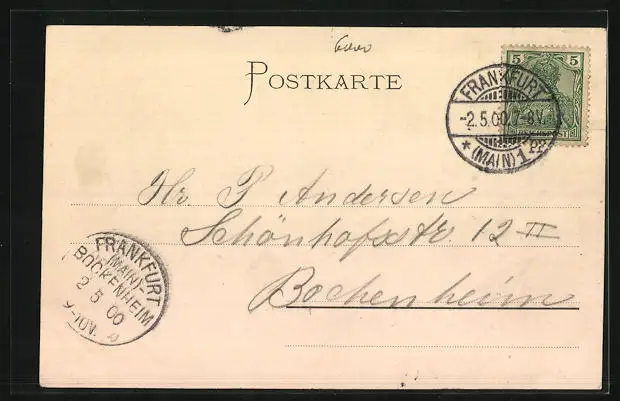 POSTKARTE
5 5
REICHSPOST
FRANKFURT
-2.5.00.7-8V.
* (MAIN) 1
Hr P Andersen
Schönhofsstr. 12 II
Bockenheim
FRANKFURT
(MAIN)-
BOCKENHEIM
2 5 00
9-10V.